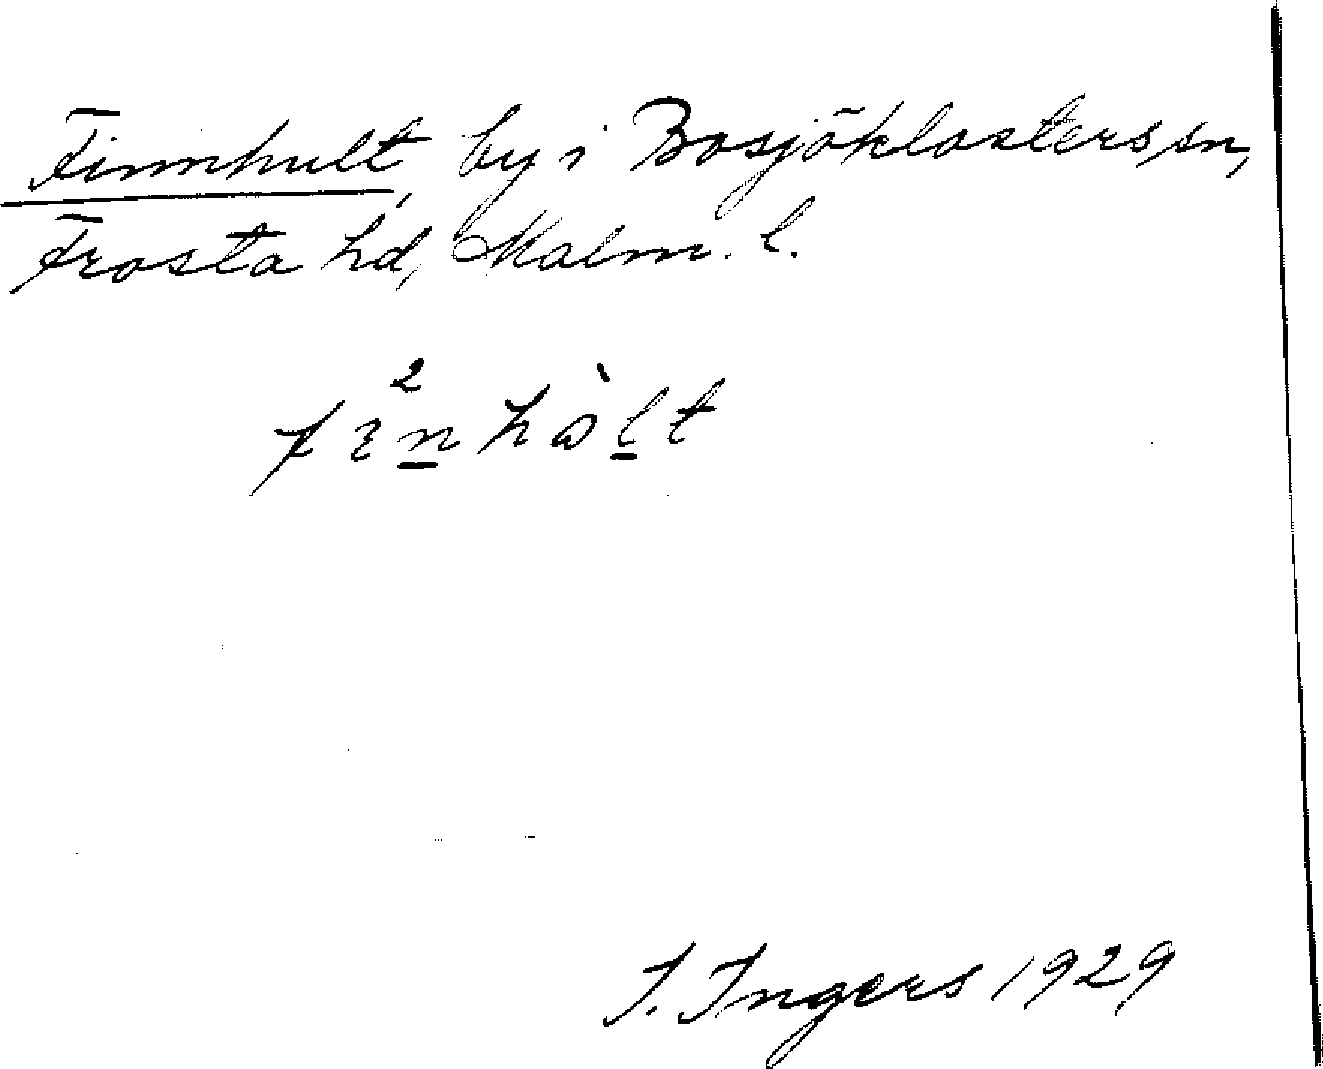 Finnhult, by i Bosjöklosters sn,
Frosta hd, Malm. l.
I. Ingers 1929